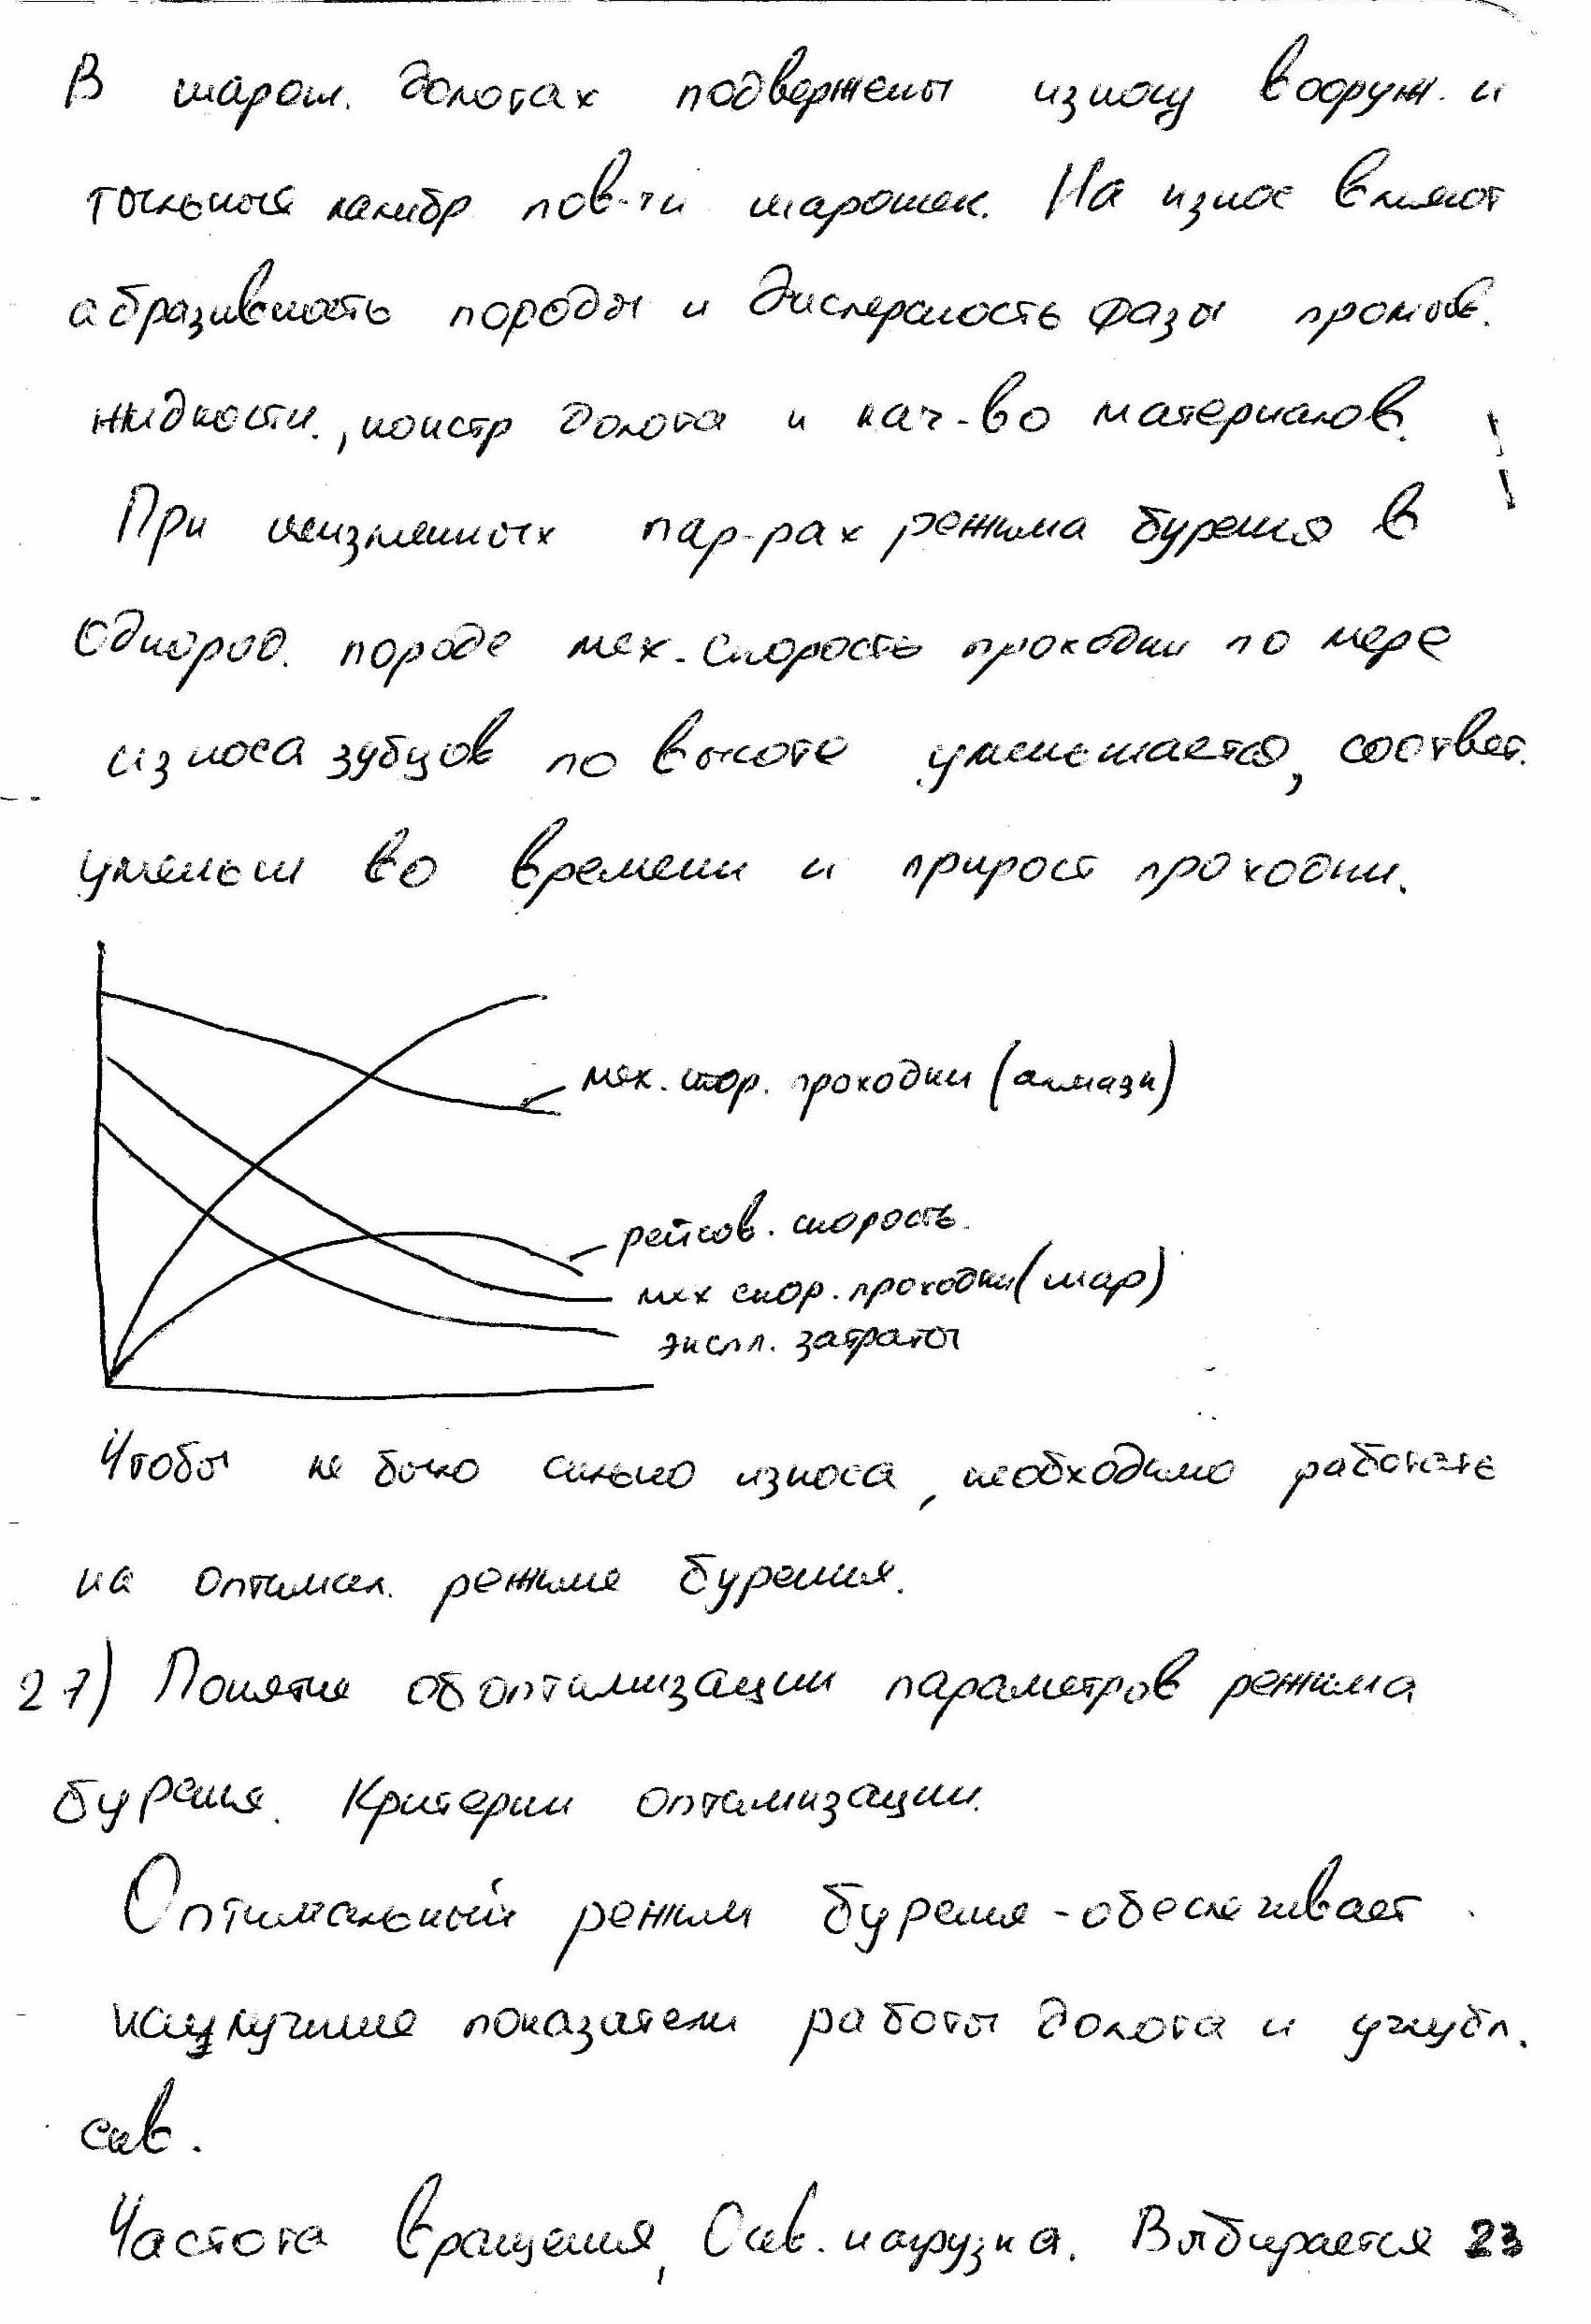 В шарош. долотах подвержены износу вооруж. и
тыльная калибр. пов-ти шарошек. На износ влияют
абразивность породы и дисперсность фазы промыв.
жидкости., констр долота и кач-во материалов.
При неизменных пар-рах режима бурения в
однород. породе мех. скорость проходки по мере
износа зубцов по высоте уменьшается, соответ.
уменьш во времени и прирост проходки.
мех. скор. проходки (алмазн)
рейсов. скорость.
мех скор. проходки (шар)
экспл. затраты
Чтобы не было сильно износа, необходимо работать
на оптимал. режиме бурения.
27) Понятие об оптимизации параметров режима
бурения. Критерии оптимизации.
Оптимальный режим бурения - обеспечивает
наилучшие показатели работы долота и углубл.
скв.
Частота вращения, Осев. нагрузка. Выбирается 23